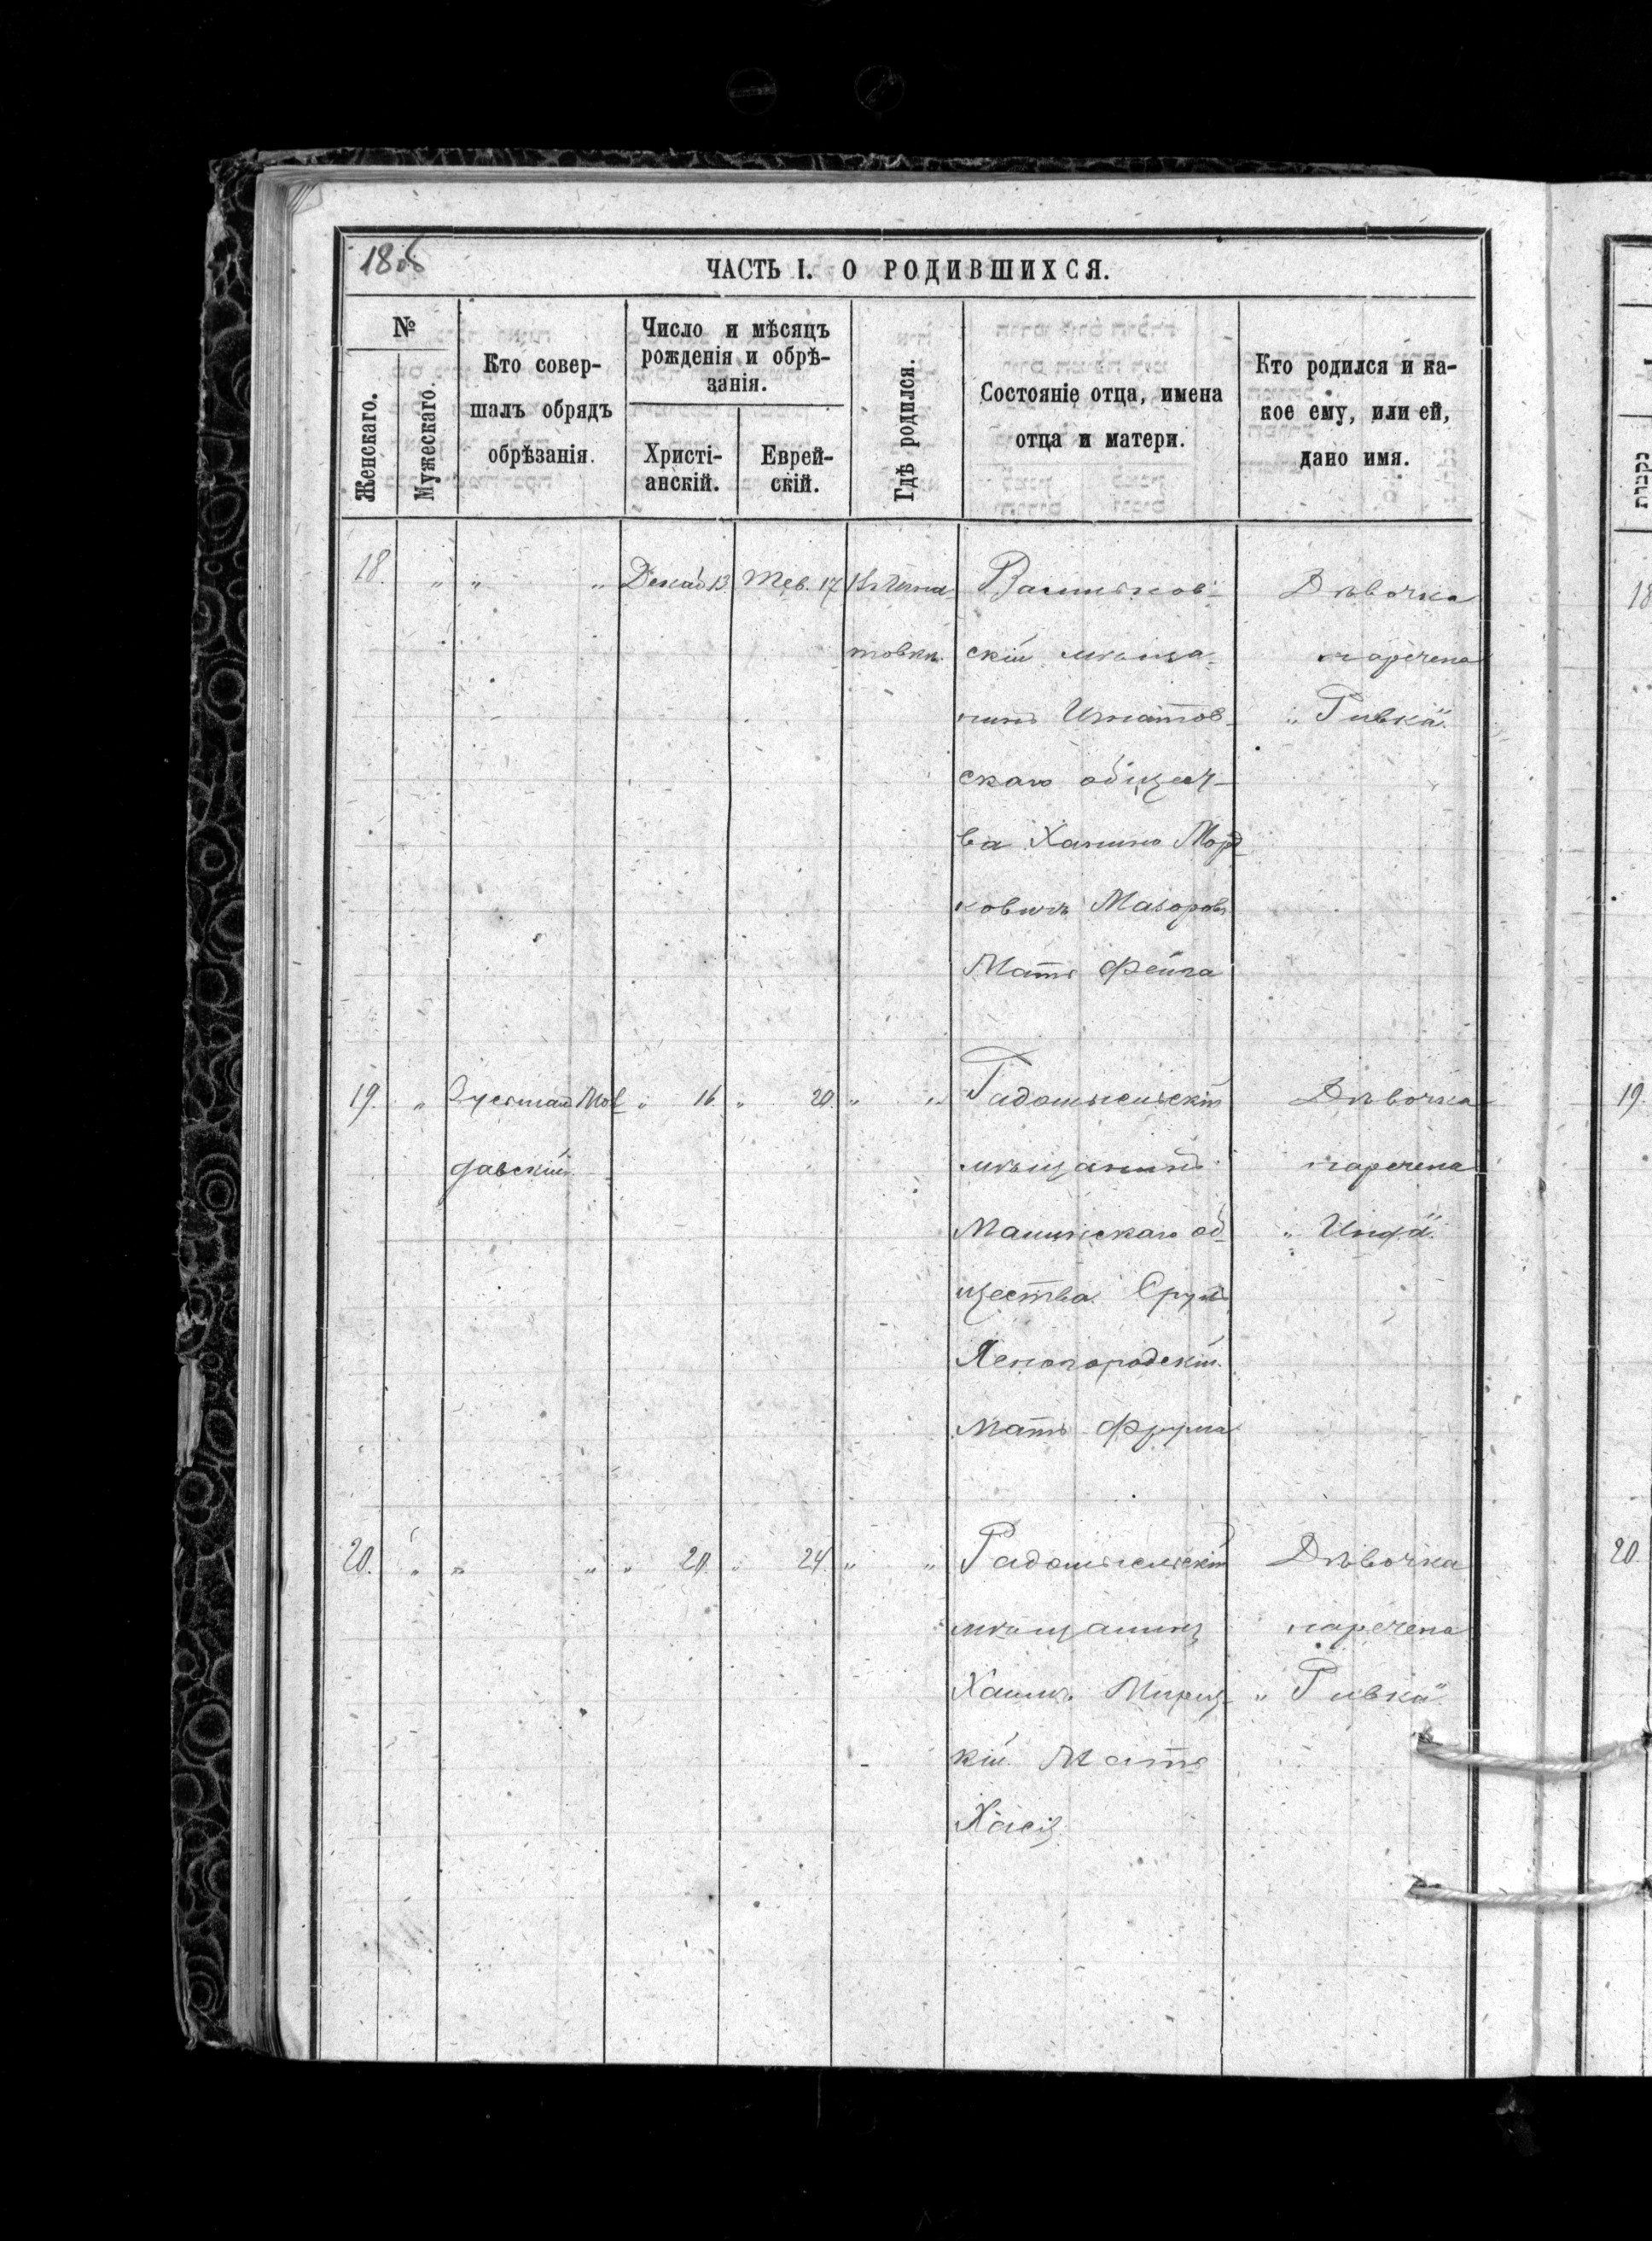 18 об
ЧАСТЬ I. О РОДИВШИХСЯ.
№
Женскаго.
Мужескаго.
Кто совер-
шалъ обрядъ
обрѣзанія.
Число и мѣсяцъ
рожденія и обрѣ-
занія.
Христі-
анскій.
Еврей-
скій.
Гдѣ родился.
Состояніе отца, имена
отца и матери.
Кто родился и ка-
кое ему, или ей,
дано имя.
18. " " " Декаб 13. Тев. 17 Въ Игна-
товкѣ.
Васильков-
скій мѣща-
нинъ Игнатов-
скаго общест-
ва Ханинъ Морд-
ковичъ Мазоръ
Мать Фейга
Дѣвочка
наречена
"Ривка".
19. " Зусьман
давскій.
" 16. " 20. " "
Радомысльскій
мѣщанинъ
Малинскаго об-
щества Сруль
Ясногородскій.
Мать Фрума
Дѣвочка
наречена
20. " " " " 20. " 24. " "
Радомысльскій
мѣщанинъ
Хаимъ
кій. Мать
Хася
Дѣвочка
наречена
"Ривка".
18
19.
20.